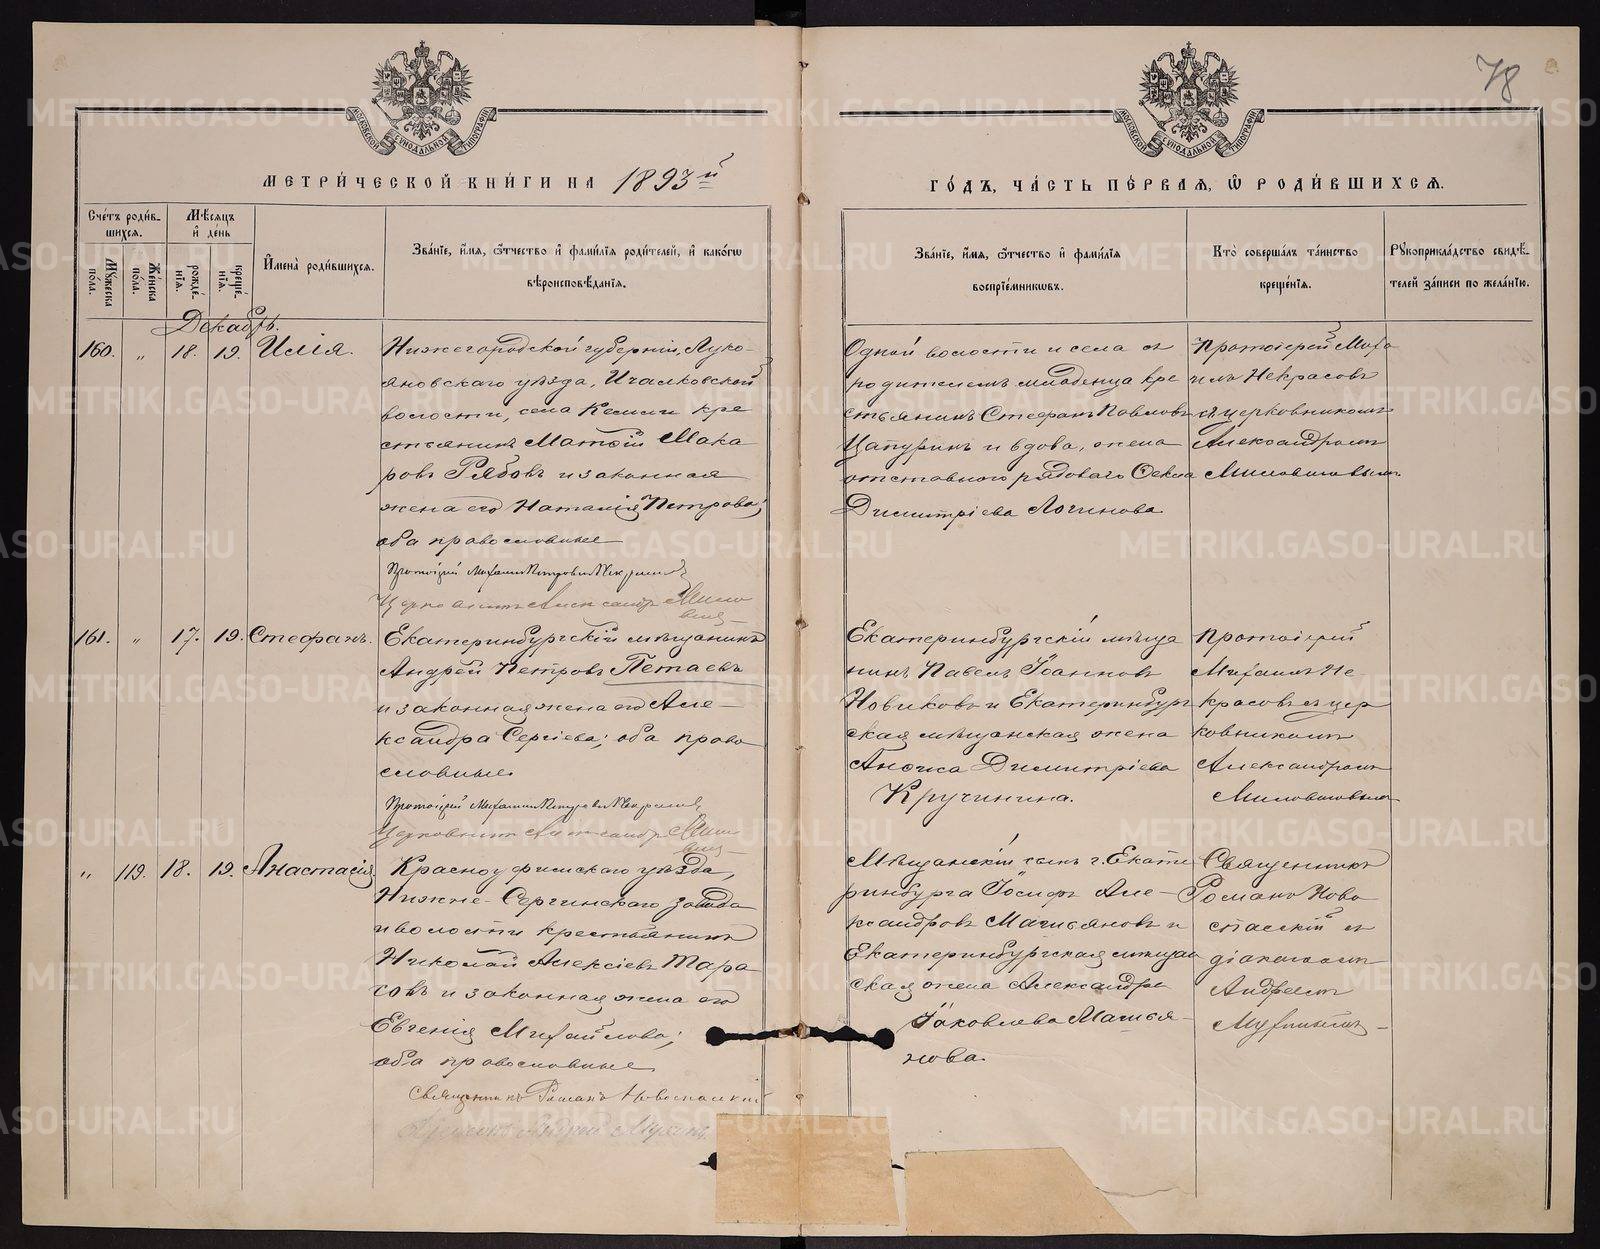 78
МОСКОВСКОЙ СѴНОДАЛЬНОЙ ТИПОГРАФІИ
МОСКОВСКОЙ СѴНОДАЛЬНОЙ ТИПОГРАФІИ
МЕТРИ́ЧЕСКОЙ КНИ́ГИ НА 1893й
ГО́ДЪ, ЧА́СТЬ ПЕ́РВАЯ, Ѡ РОДИ́ВШИХСЯ.
Сче́тъ роди́в-
шихся.
Мꙋжеска
пола.
Же́нска
по́ла.
Мѣ́сяцъ
и҆ де́нь
рожде́-
нїя.
креще́-
нїя.
И҆мена̀ роди́вшихся.
Зва́нїе, и҆́мя, ѻ҆́тчество и҆ фами́лїя роди́телей, и҆ како́гѡ
вѣроисповѣ́данїя.
Зва́нїе, и҆́мя, ѻ҆́тчество и҆ фами́лїя
воспрїе́мникѡвъ.
Кто̀ соверша́лъ та́инство
креще́нїя.
Рꙋкоприкла́дство свидѣ́-
телей за́писи по жела́нїю.
Декабрь.
160. „ 18. 19. Илія.
Нижегородской губерніи, Луко-
яновскаго уѣзда, Ичалковской
волости, села Кемли кре
стьянинъ Матѳій Мака
ровъ Рябовъ и законная
жена его Наталія Петрова;
оба православные
Протоіерей Михаилъ Петровъ Некрасовъ
Церковникъ Александръ Мило
Одной волости и села съ
родителемъ младенца кре
стьянинъ Стефанъ Павловъ
Цапуринъ и вдова, жена
отставного рядоваго Ѳекла
Димитріева Логинова
Протоіерей Миха
илъ Некрасовъ
съ церковникомъ
Александромъ
161. „ 17. 19. Стефанъ.
Екатеринбургскій мѣщанинъ
Андрей Петровъ Петаевъ
и законная жена его Але-
ксандра Сергіева; оба право
славные
Протоіерей Михаилъ Петровъ Некрасовъ
Церковникъ Александръ Мило
Екатеринбургскій мѣща
нинъ Павелъ Іоанновъ
Новиковъ и Екатеринбург
ская мѣщанская жена
Анѳиса Димитріева
Кручинина.
Протоіерей
Михаилъ Не-
красовъ съ цер
ковникомъ
Александромъ
„ 119. 18. 19. Анастасія
Красноуфимскаго уѣзда,
Нижне-Сергинскаго завода
и волости крестьянинъ
Николай Алексіевъ Тара
совъ и законная жена его
Евгенія Михайлова;
оба православные
Священникъ Романъ Новоспасскій
Діаконъ Андрей
Мѣщанскій сынъ г. Екате
ринбурга Іосифъ Але-
ксандровъ Мачильяновъ и
Екатеринбургская мѣщан
ская жена Александра
Іаковлева Мачилья-
нова.
Священникъ
Романъ Ново
спасскій съ
діакономъ
Андреемъ
METRIKI.GASO-URAL.RU